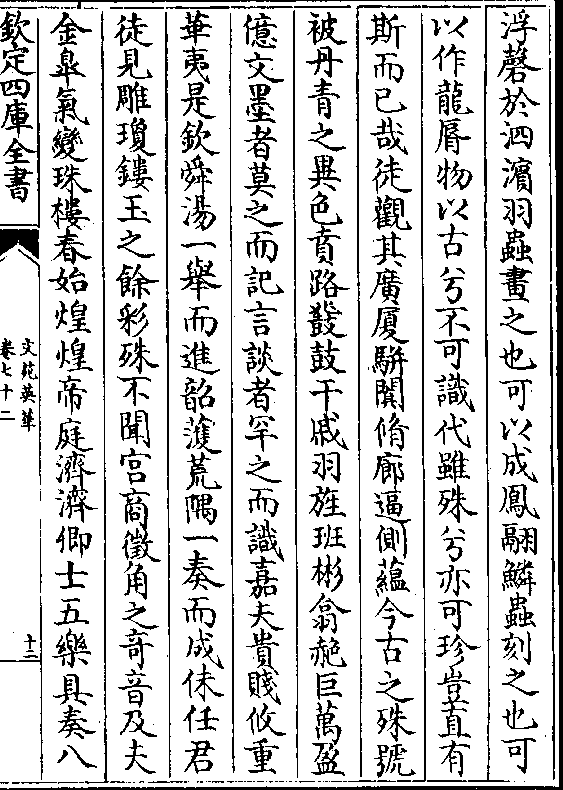 浮磬於泗濱羽蟲畫之也可以成鳳翮鱗蟲刻之也可
以作龍脣物以古兮不可識代雖殊兮亦可珍豈直有
斯而已哉徒觀其廣厦駢闐脩廊逼側蘊今古之殊號
被丹青之異色賁路鼗鼓干戚羽旌班彬翕赩巨萬盈
億文墨者莫之而記言談者罕之而識嘉夫貴賤攸重
華夷是欽舜湯一舉而進韶濩荒隅一奏而成佅任君
徒見雕瓊鏤玉之餘彩殊不聞宫商徵角之竒音及夫
金晷氣變珠樓春始煌煌帝庭濟濟卿士五樂具奏八
欽定四庫全書
文苑英華
卷七十二
十三